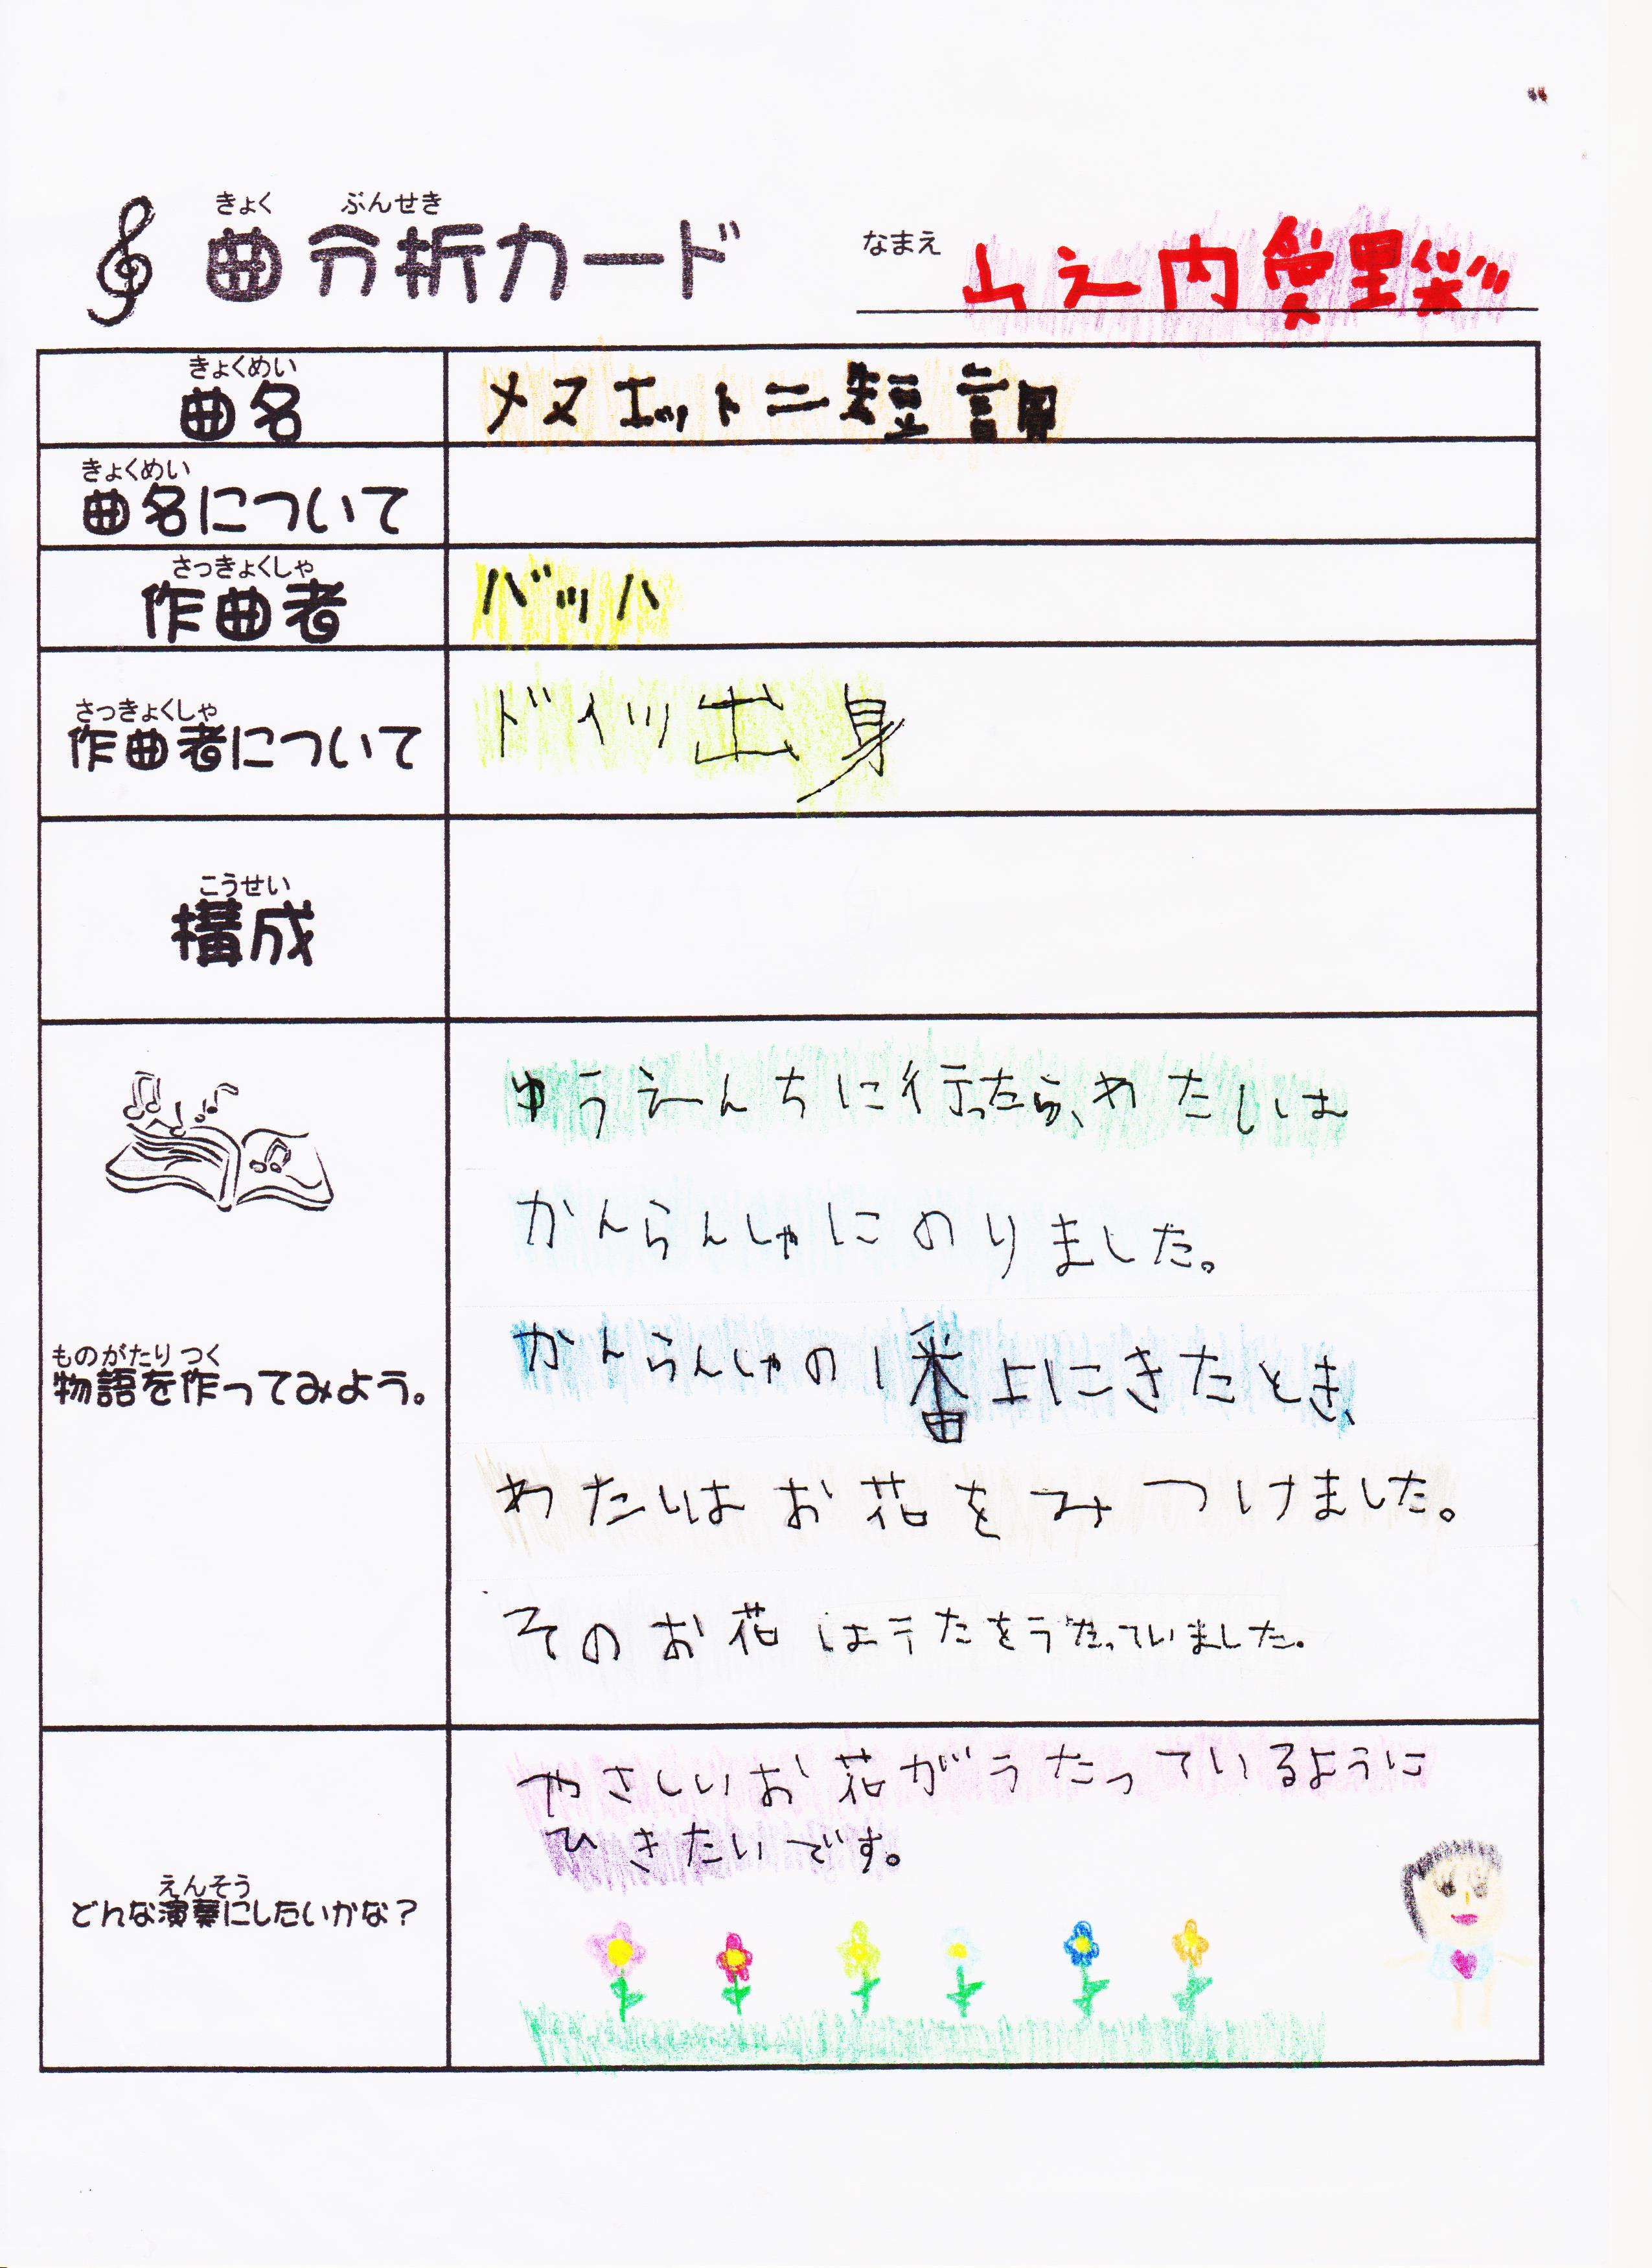 きょく ぶんせき
曲分析カード
なまえ 山之内愛里紗
きょくめい
曲名
メヌエットニ短調
きょくめい
曲名について
さっきょくしゃ
作曲者
バッハ
さっきょくしゃ
作曲者について
ドイツ出身
こうせい
構成
ものがたり つく
物語を作ってみよう。
ゆうえんちに行ったら、わたしは
かんらんしゃにのりました。
かんらんしゃの1番上にきたとき、
わたしはお花をみつけました。
そのお花はうたをうたっていました。
えんそう
どんな演奏にしたいかな？
やさしいお花がうたっているように
ひきたいです。